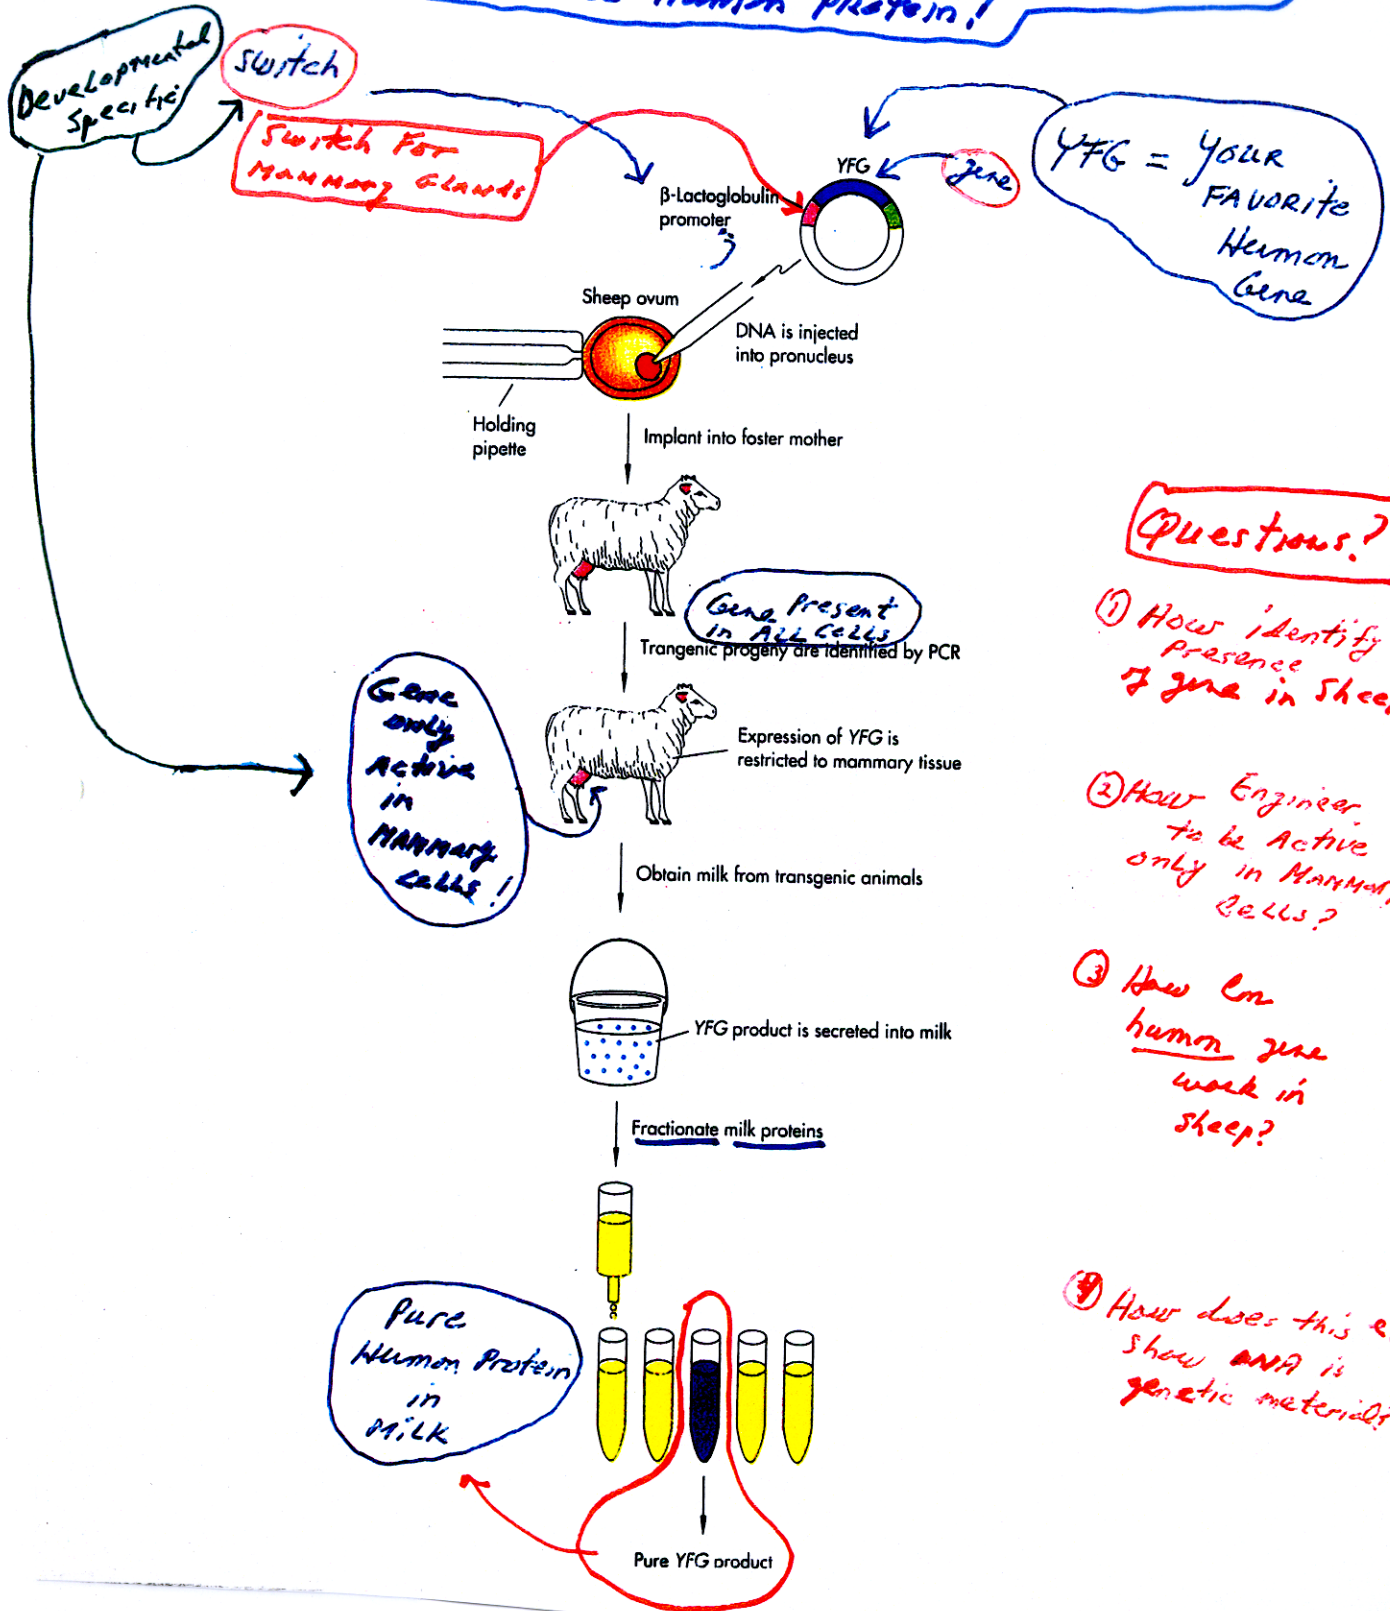 Human Protein!
Developmental
Specific
Switch
Switch For
Mammary Glands
YFG
gene
β-Lactoglobulin
promoter
YFG = Your
FAVORITE
Human
Gene
Sheep ovum
DNA is injected
into pronucleus
Holding
pipette
Implant into foster mother
Gene Present
in ALL Cells
Trangenic progeny are identified by PCR
Gene
only
Active
in
MAMMARY
Cells!
Expression of YFG is
restricted to mammary tissue
Obtain milk from transgenic animals
YFG product is secreted into milk
Fractionate milk proteins
Pure
Human Protein
in
MILK
Pure YFG product
Questions?
① How identify
Presence
of gene in Shee
② How Engineer
to be Active
only in MAMMA
Cells?
③ How Can
human gene
work in
sheep?
④ How does this e
show DNA is
genetic material?